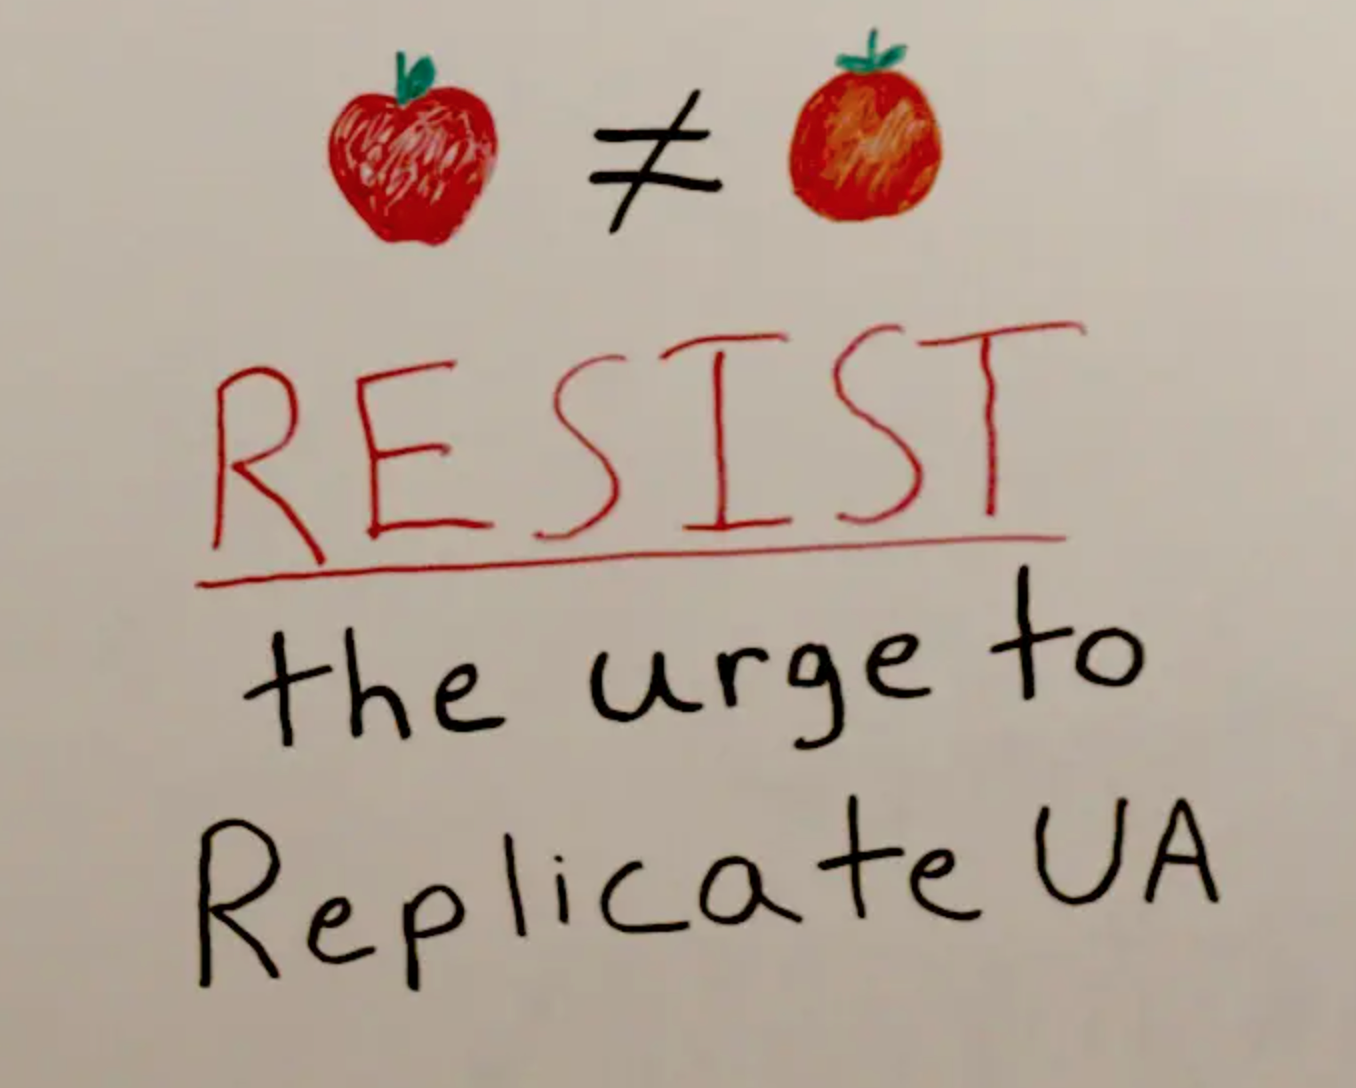 ≠
RESIST
the urge to
Replicate UA